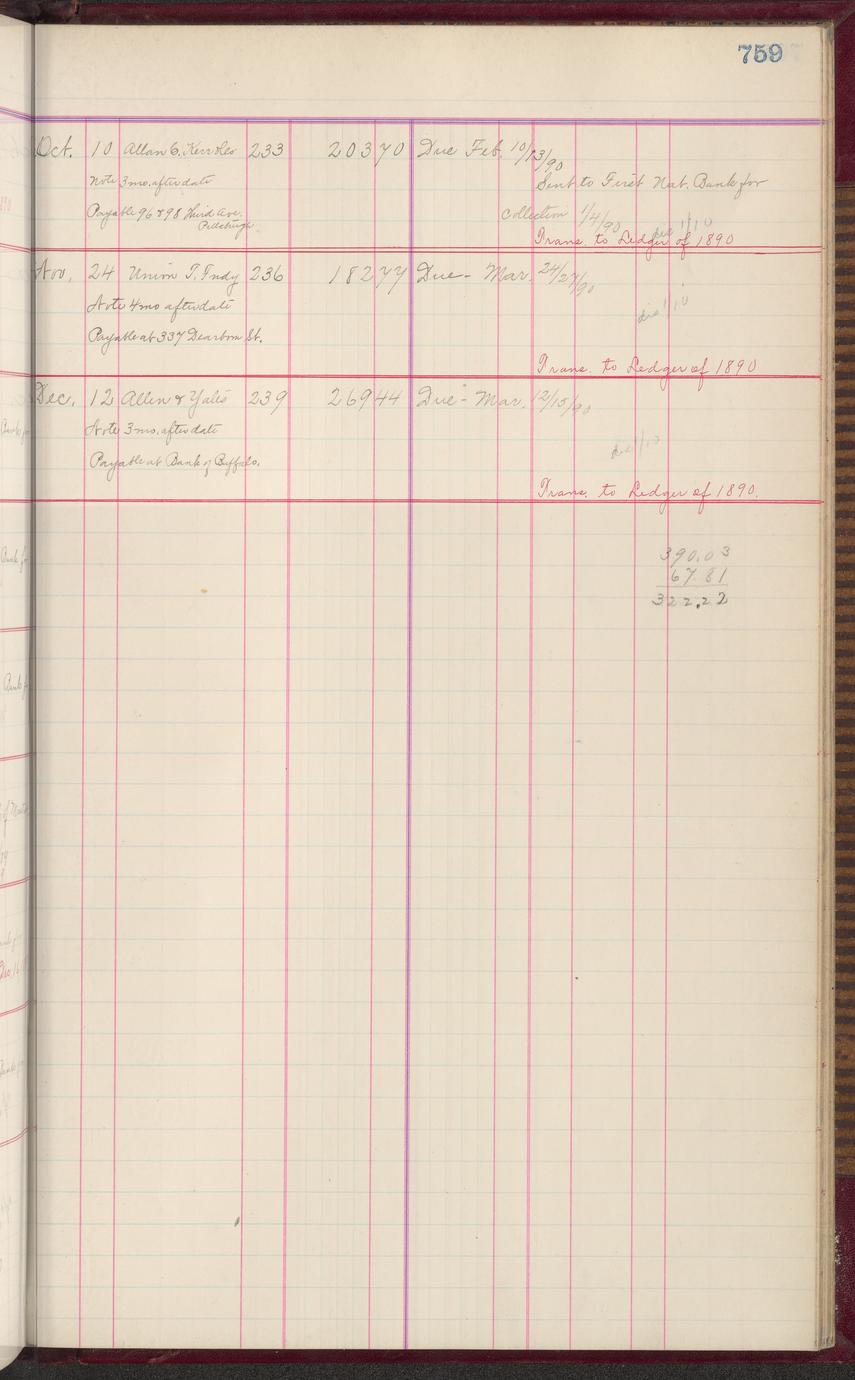 759
Oct. 10 Allan C. Kerr 233 203 70 Due Feb. 10/13/90
Note 3 mo. after date Sent to First Nat. Bank for
Payable 96 & 98 Third Ave. collection 1/4/90
Pittsburgh. Trans. to Ledger of 1890
Nov. 24 Union T. Fndy 236 182 77 Due - Mar. 24/27/90
Note 4 mo after date
Payable at 337 Dearborn St.
Trans. to Ledger of 1890
Dec. 12 Allen & Yates 239 269 44 Due - Mar. 12/15/90
Note 3 mo. after date
Payable at Bank of Buffalo.
Trans. to Ledger of 1890.
390.03
67.81
322.22